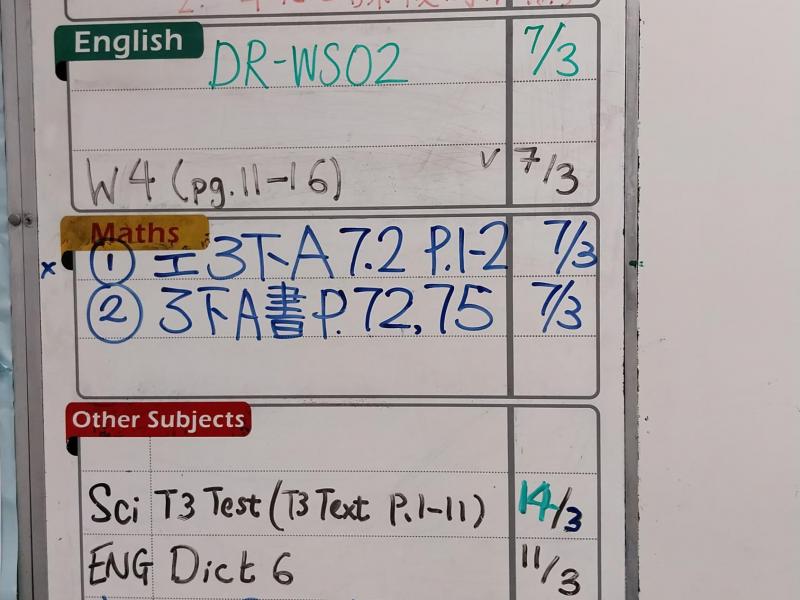 English
DR-WS02 7/3
W4 (pg.11-16) v 7/3
Maths
x ① 工3下A 7.2 P.1-2 7/3
② 3下A書P.72,75 7/3
Other Subjects
Sci T3 Test (T3 Text P.1-11) 14/3
ENG Dict 6 11/3